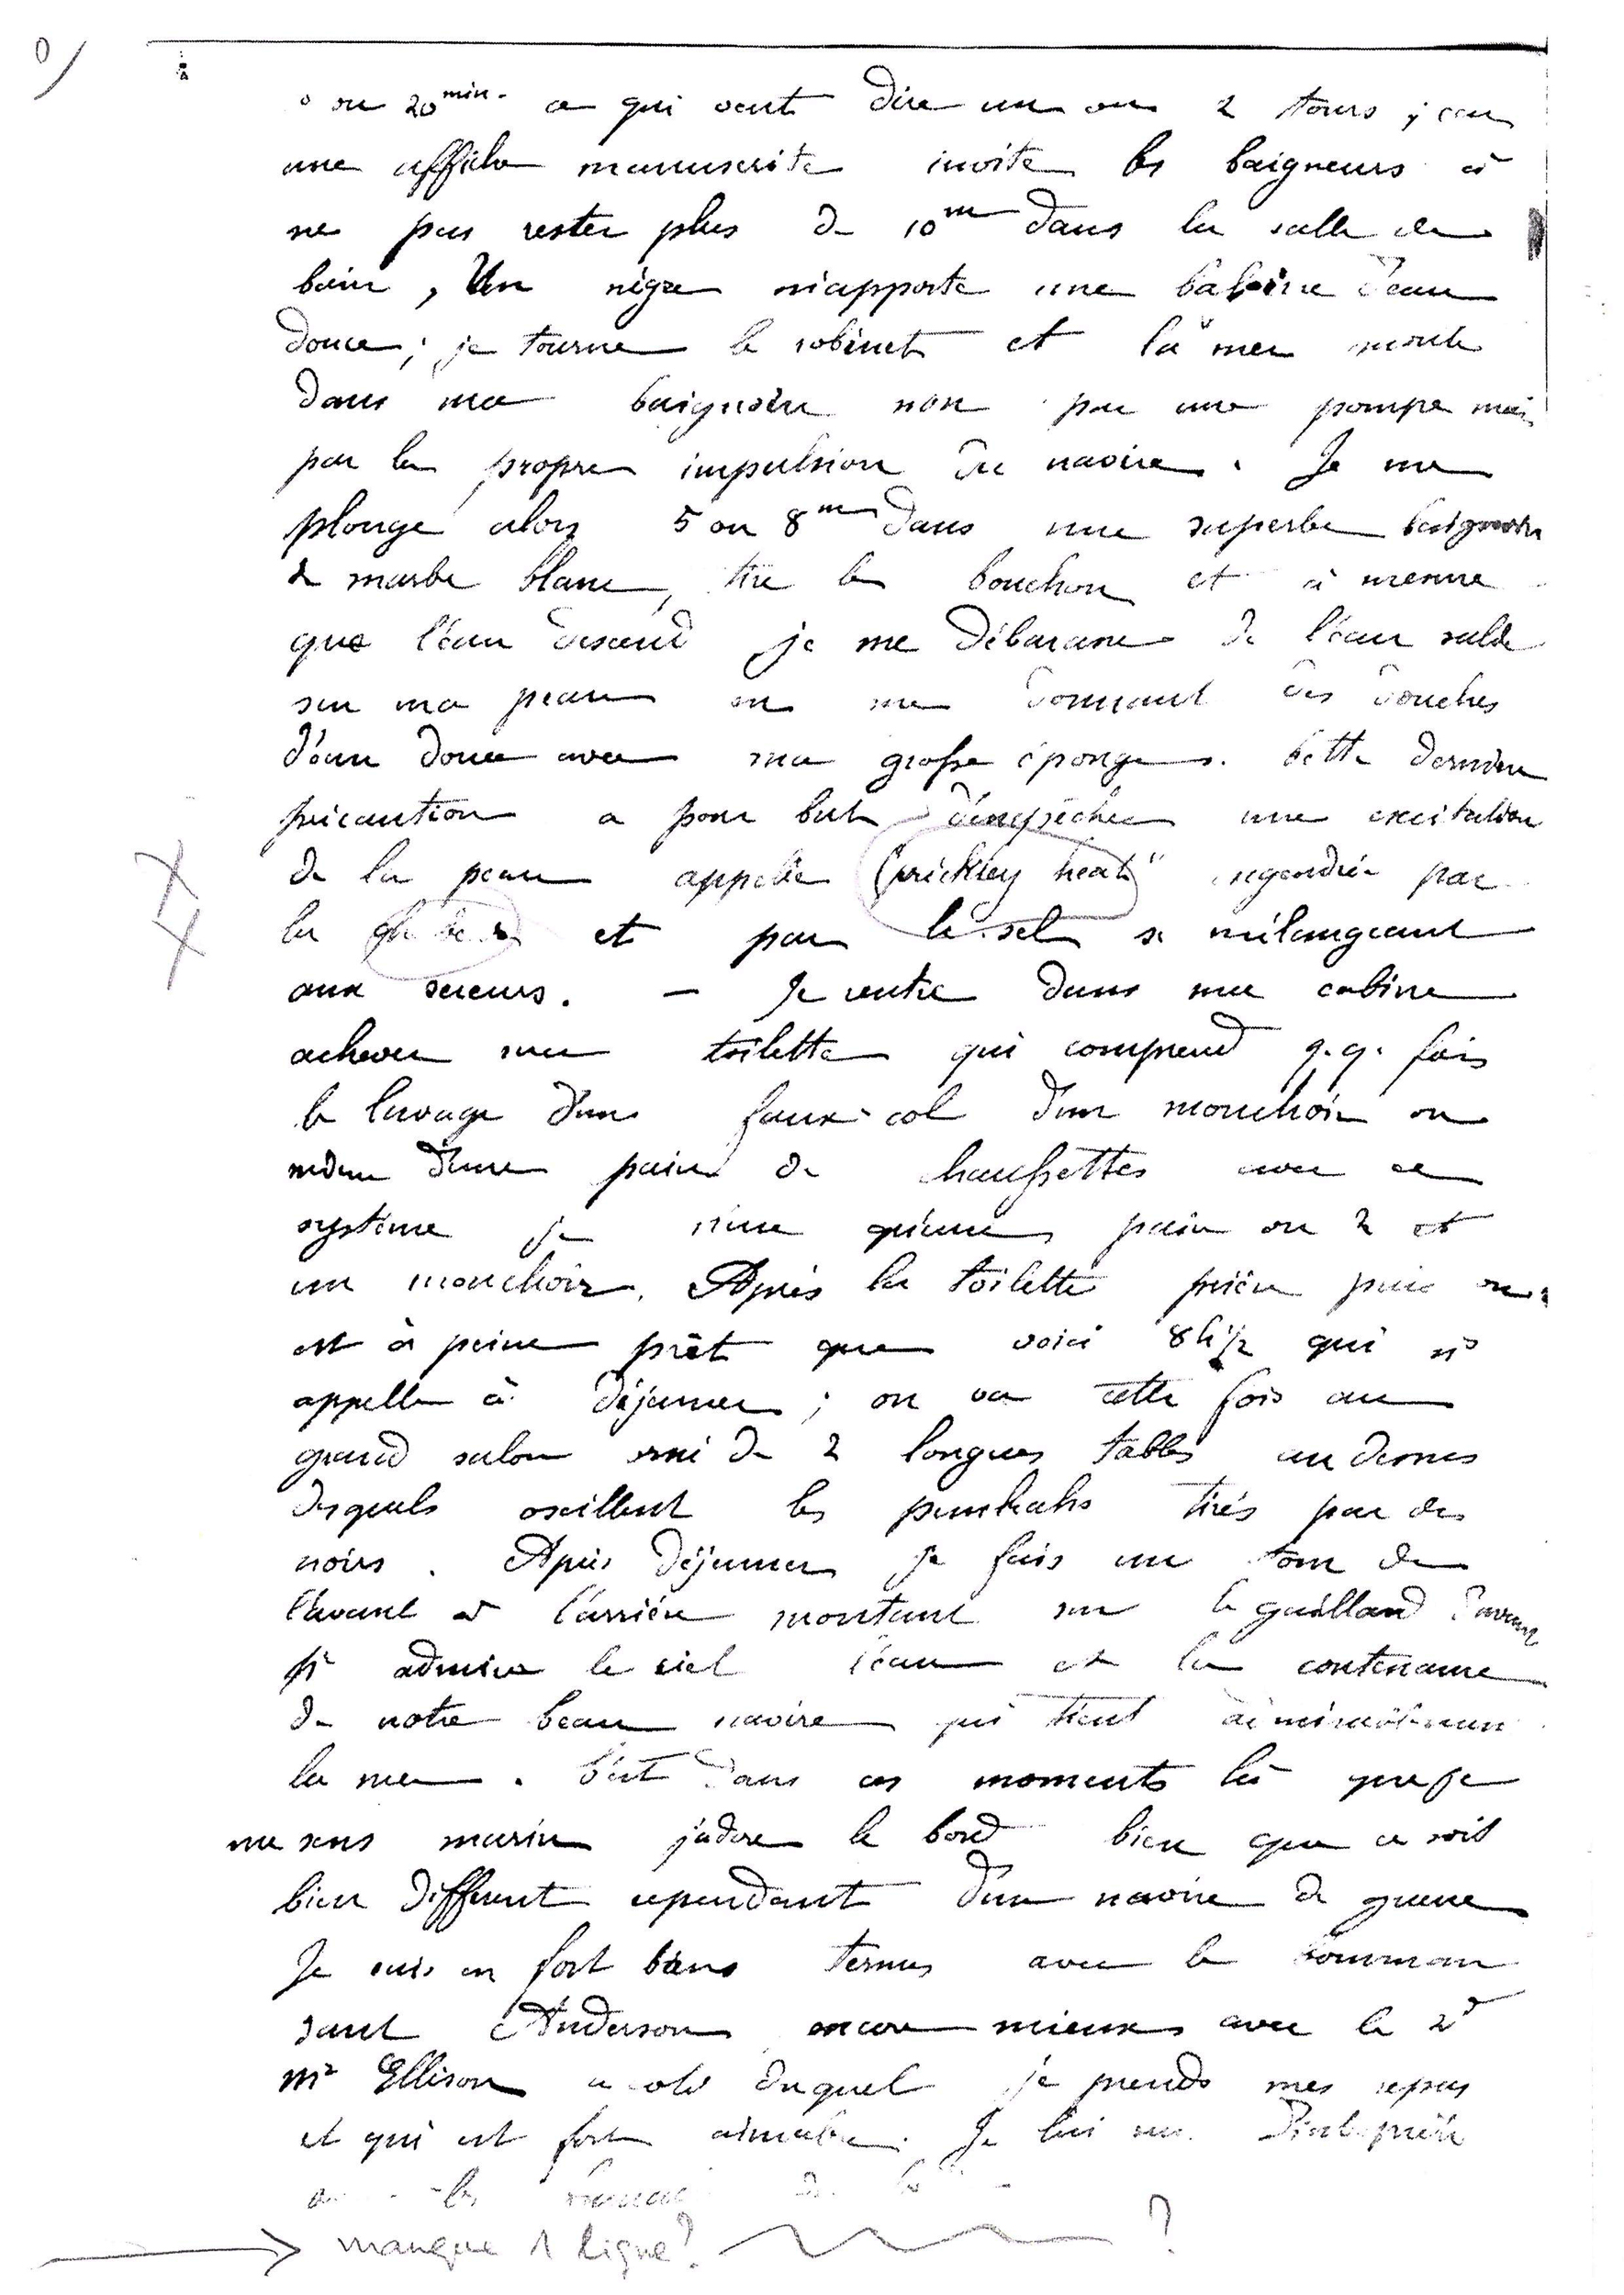 0/
0 ou 20 min. ce qui veut dire un ou 2 tours ; car
une affiche manuscrite invite les baigneurs à
ne pas rester plus de 10 m dans la salle de
bain, Un nègre m'apporte une baleine d'eau
douce ; je tourne le robinet et la mer monte
dans ma baignoire non par une pompe mais
par la propre impulsion du navire. Je me
plonge alors 5 ou 8 m dans une superbe baignoire
de marbre blanc, tire le bouchon et à mesure
que l'eau descend je me débarasse de l'eau salée
sur ma peau en me donnant des douches
d'eau douce avec ma grosse éponge. Cette dernière
précaution a pour but d'empêcher une excitation
de la peau appelée "prickley heat" engendrée par
la et par le sel se mélangeant
aux sueurs. — Je rentre dans ma cabine
achever ma toilette qui comprend q.q. fois
le lavage d'un faux-col d'un mouchoir ou
même d'une paire de chaussettes avec ce
système je n'use qu'une paire ou 2 et
un mouchoir. Après la toilette prière puis on
est à peine prêt que voici 8h 1/2 qui ns
appelle à déjeuner ; on va cette fois au
grand salon orné de 2 longues tables au dessus
desquels oscillent les punkahs tirés par des
noirs. Après déjeuner je fais un tour de
l'avant à l'arrière montant sur le gaillard d'avant
j'y admire le ciel l'eau et la contenance
de notre beau navire qui tient admirablement
la mer. C'est dans ces moments là que je
me sens marin j'adore le bord bien que ce soit
bien différent cependant d'un navire de guerre
Je suis en fort bons termes avec le comman
dant Anderson encore mieux avec le 2d
Mr Ellison à côté duquel je prends mes repas
et qui est fort aimable. Je lui
manque 1 ligne ? ?